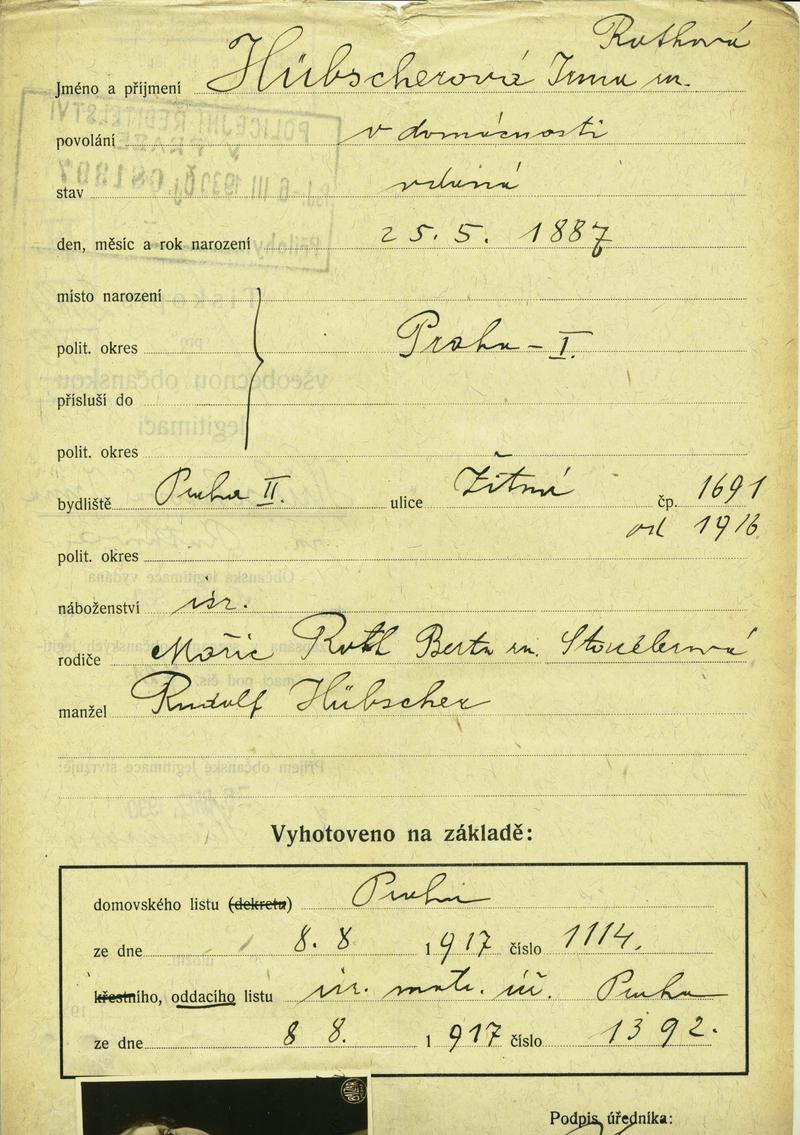 Rothová
Jméno a příjmení Hübscherová Irma rn.
povolání v domácnosti
stav vdaná
den, měsíc a rok narození 25. 5. 1887
místo narození
polit. okres Praha – I.
přísluší do
polit. okres
bydliště Praha II. ulice Žitná čp. 1691
od 1916
polit. okres
náboženství isr.
rodiče Mořic Roth Berta rn.
manžel Rudolf Hübscher
Vyhotoveno na základě:
domovského listu (dekretu) Praha
ze dne 8. 8 1917 číslo 1114.
křestního, oddacího listu isr. matr. úř. Praha
ze dne 8 8. 1917 číslo 1392.
Podpis úředníka: